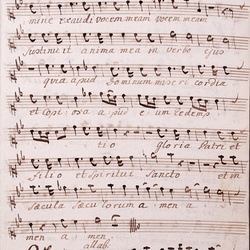 mine exaudi vocem meam vocem meam
sustinuit anima mea in verbo ejus
quia apud Dominum misericordia
et copiosa apud eum redemp
tio Gloria Patri et
filio et spiritui Sancto et in
sæcula sæculorum a men a
men a men
allab: